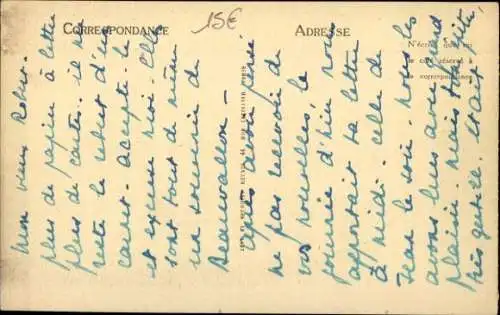 CORRESPONDANCE
15€
ADRESSE
N'écrire que
le côté réservé à
la correspondance
Mon vieux Robert.
plus de papier à lettre
plus de cartes. il me
reste le rebut d'un
carnet. accepte-le
et excuse moi. Elle
sont tout de même
un souvenir de
Beauvallon-
Après avoir
ne pas recevoir de
vos nouvelles, la
journée d'hier nous
apportait ta lettre
à midi. celle de
Jean le soir. nous les
avons lues avec grand
plaisir. mais
très gentil. C'était